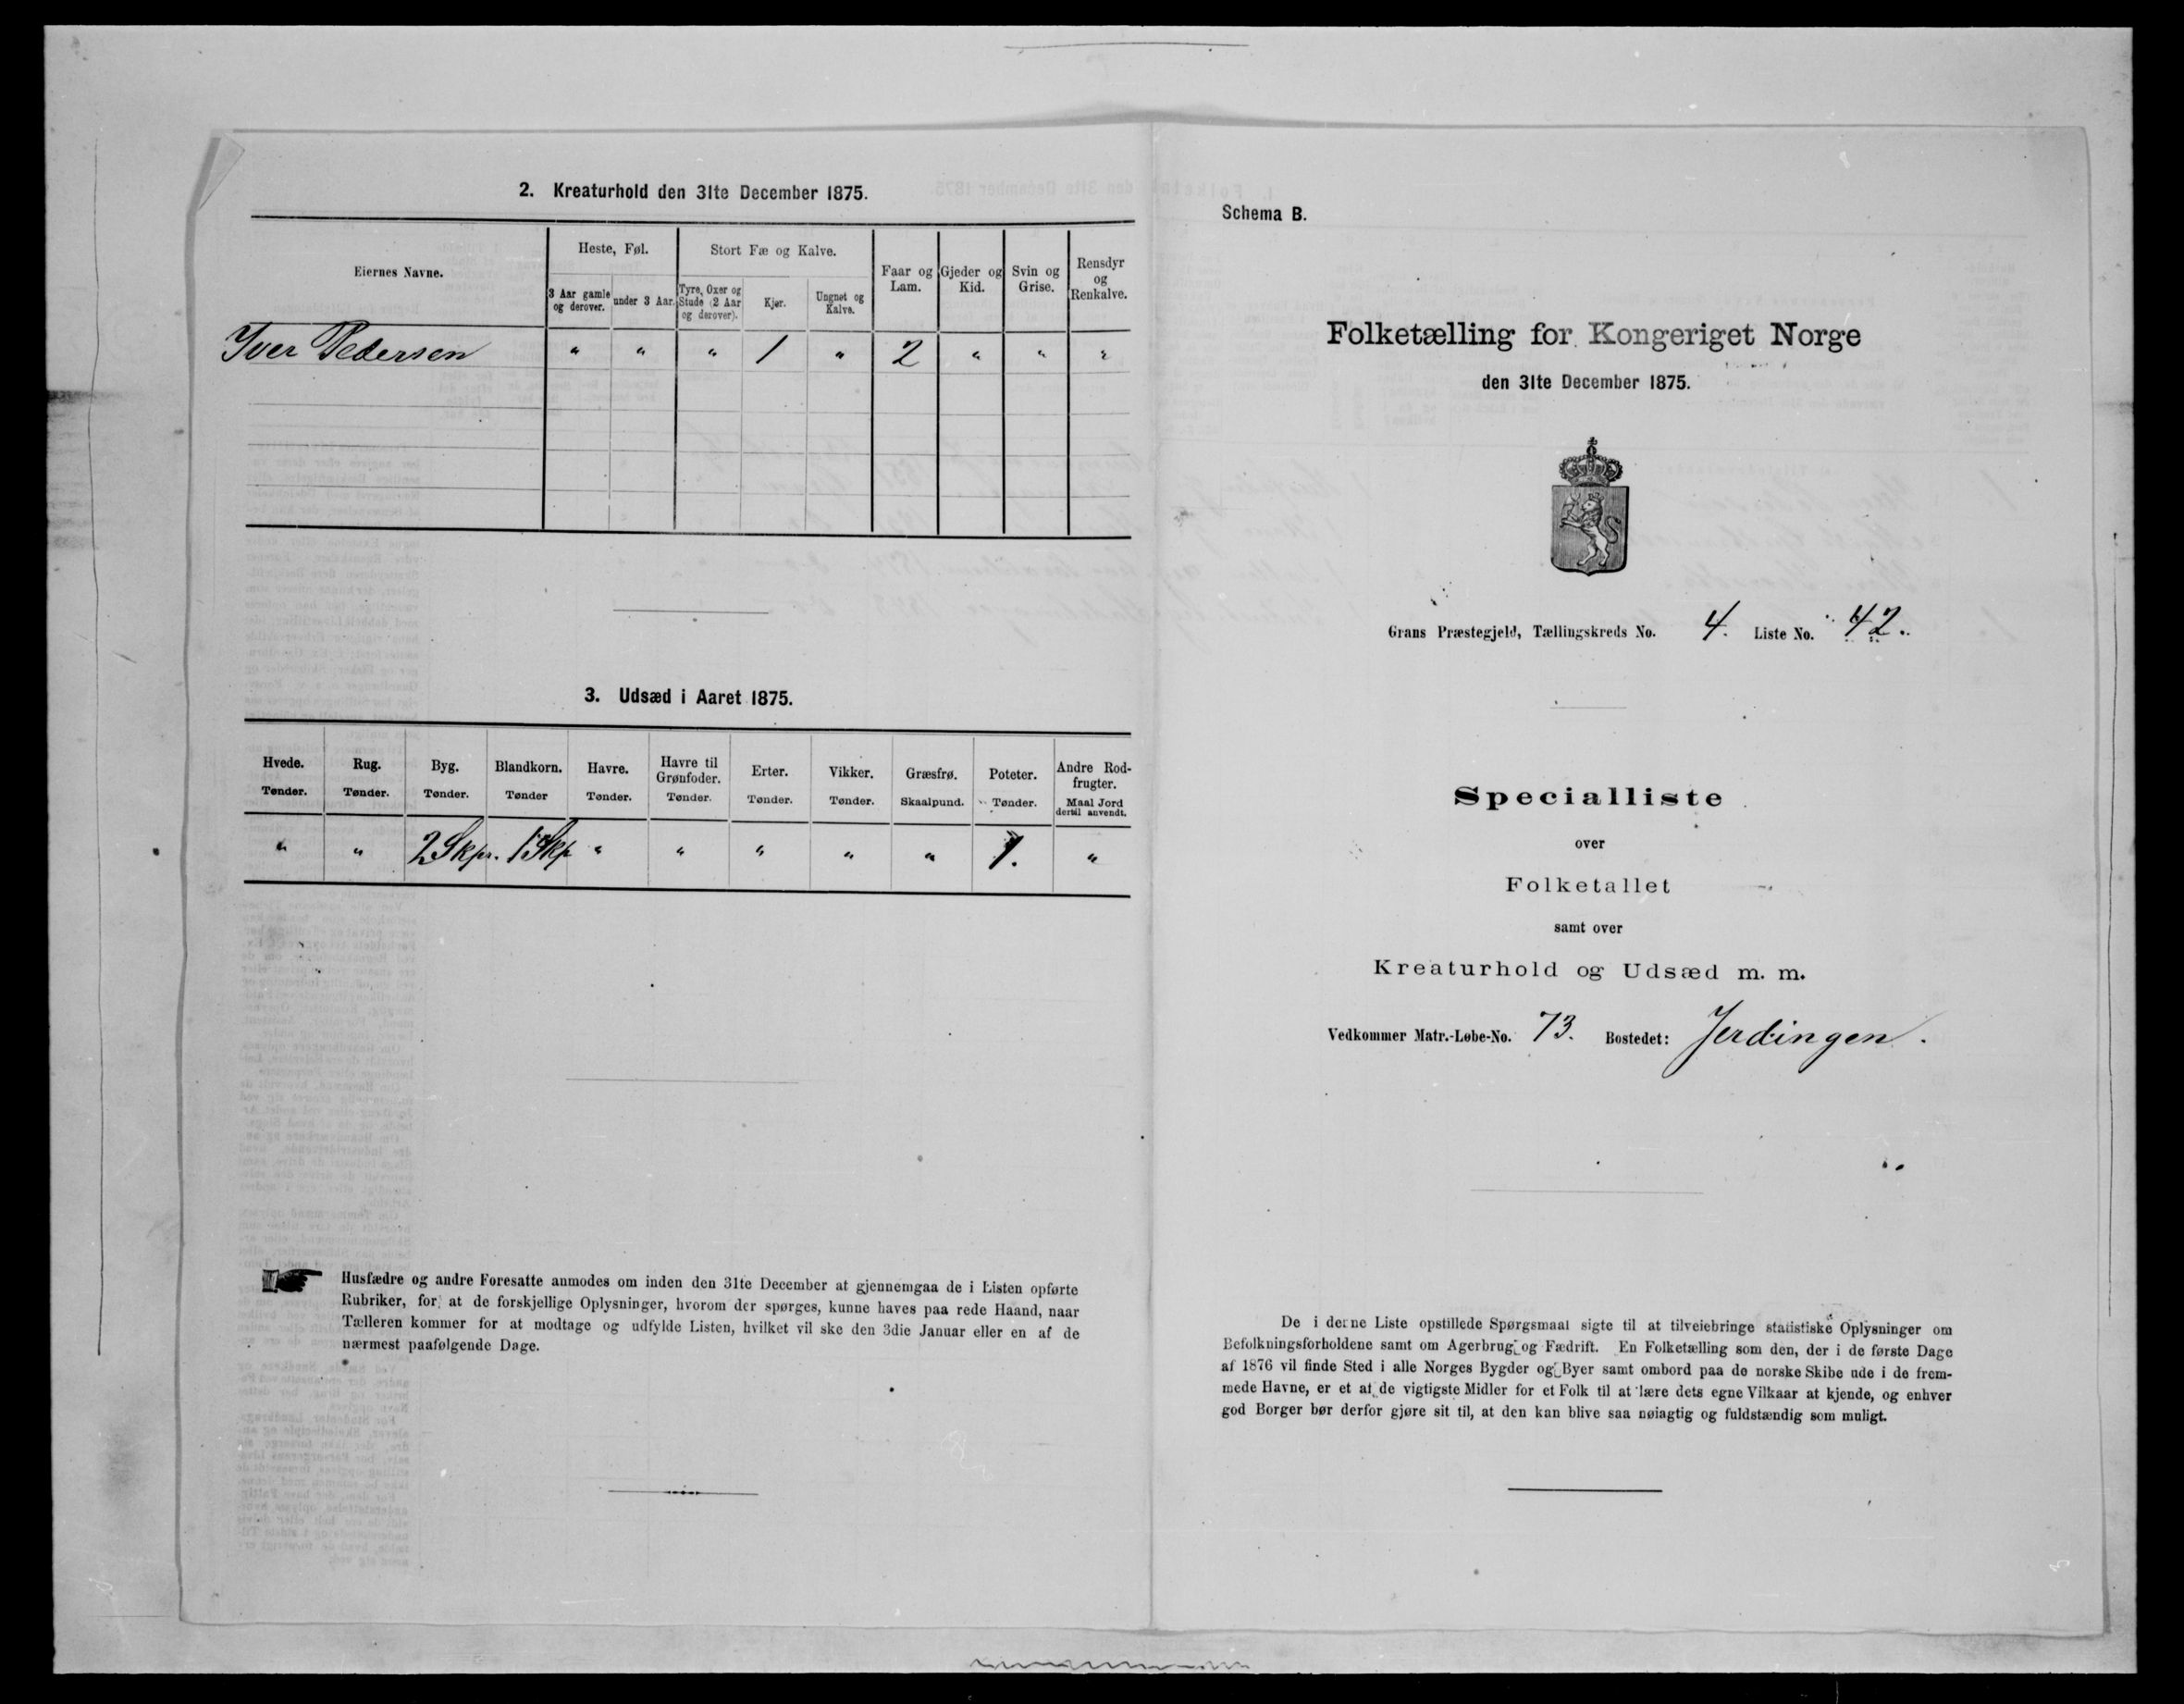 2. Kreaturhold den 31te December 1875.
Eiernes Navne.
Heste, Føl.
Stort Fæ og Kalve.
3 Aar gamle og derover.
under 3 Aar.
Tyre, Oxer og Stude (2 Aar og derover).
Kjør.
Ungnøt og Kalve.
Faar og Lam.
Gjeder og Kid.
Svin og Grise.
Rensdyr og Renkalve.
Iver Pedersen " " " 1 " 2 " " "
3. Udsæd i Aaret 1875.
Hvede. Rug. Byg. Blandkorn. Havre. Havre til Grønfoder. Erter. Vikker. Græsfrø. Poteter. Andre Rodfrugter.
Tønder. Tønder. Tønder. Tønder Tønder. Tønder. Tønder. Tønder. Skaalpund. Tønder. Maal Jord dertil anvendt.
" " 2 Skpr. 1 Skp " " " " " 1. "
Husfædre og andre Foresatte anmodes om inden den 31te December at gjennemgaa de i Listen opførte
Rubriker, for at de forskjellige Oplysninger, hvorom der spørges, kunne haves paa rede Haand, naar
Tælleren kommer for at modtage og udfylde Listen, hvilket vil ske den 3die Januar eller en af de
nærmest paafølgende Dage.
Schema B.
Folketælling for Kongeriget Norge
den 31te December 1875.
Grans Præstegjeld, Tællingskreds No. 4. Liste No. 42.
Specialliste
over
Folketallet
samt over
Kreaturhold og Udsæd m. m.
Vedkommer Matr.-Løbe-No. 73. Bostedet: Jerdingen.
De i denne Liste opstillede Spørgsmaal sigte til at tilveiebringe statistiske Oplysninger om
Befolkningsforholdene samt om Agerbrug og Fædrift. En Folketælling som den, der i de første Dage
af 1876 vil finde Sted i alle Norges Bygder og Byer samt ombord paa de norske Skibe ude i de frem-
mede Havne, er et af de vigtigste Midler for et Folk til at lære dets egne Vilkaar at kjende, og enhver
god Borger bør derfor gjøre sit til, at den kan blive saa nøiagtig og fuldstændig som muligt.